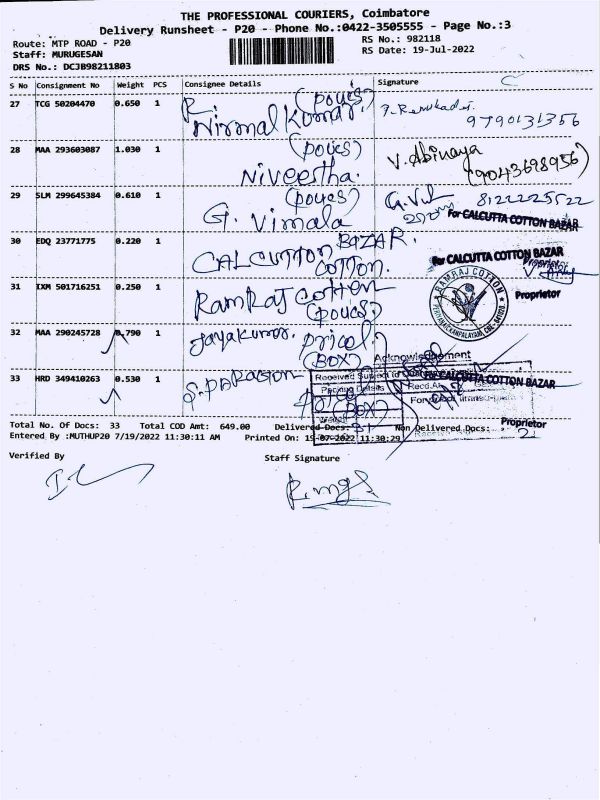 THE PROFESSIONAL COURIERS, Coimbatore
Delivery Runsheet - P20 - Phone No.:0422-3505555 - Page No.:3
Route: MTP ROAD - P20
RS No.: 982118
Staff: MURUGESAN
RS Date: 19-Jul-2022
DRS No.: DCJB98211803
S No Consignment No Weight PCS Consignee Details Signature
27 TCG 50204470 0.650 1 R. Nirmal Kumar. (poues)
9790131356
28 MAA 293603087 1.030 1 (poues) Niveetha. V. Abinaya
(9043698956)
29 SLM 299645384 0.610 1 (poues) G. Vimala 8122225522
For CALCUTTA COTTON BAZAR
30 EDQ 23771775 0.220 1 CALCUTTON BAZAR. COTTON.
For CALCUTTA COTTON BAZAR
Proprietor
31 IXM 501716251 0.250 1 RAMRAJ cotton (poues)
RAMRAJ COTTON
Proprietor
32 MAA 290245728 0.790 1 Jayakumar. (BOX)
Acknowledgement
33 HRD 349410263 0.530 1 (BOX)
Received Subject to
For CALCUTTA COTTON BAZAR
Packing Details Recd.At
Proprietor
Total No. Of Docs: 33 Total COD Amt: 649.00 Delivered Docs: 31 Non Delivered Docs: 2
Entered By :MUTHUP20 7/19/2022 11:30:11 AM Printed On: 19-07-2022 11:30:29
Verified By Staff Signature